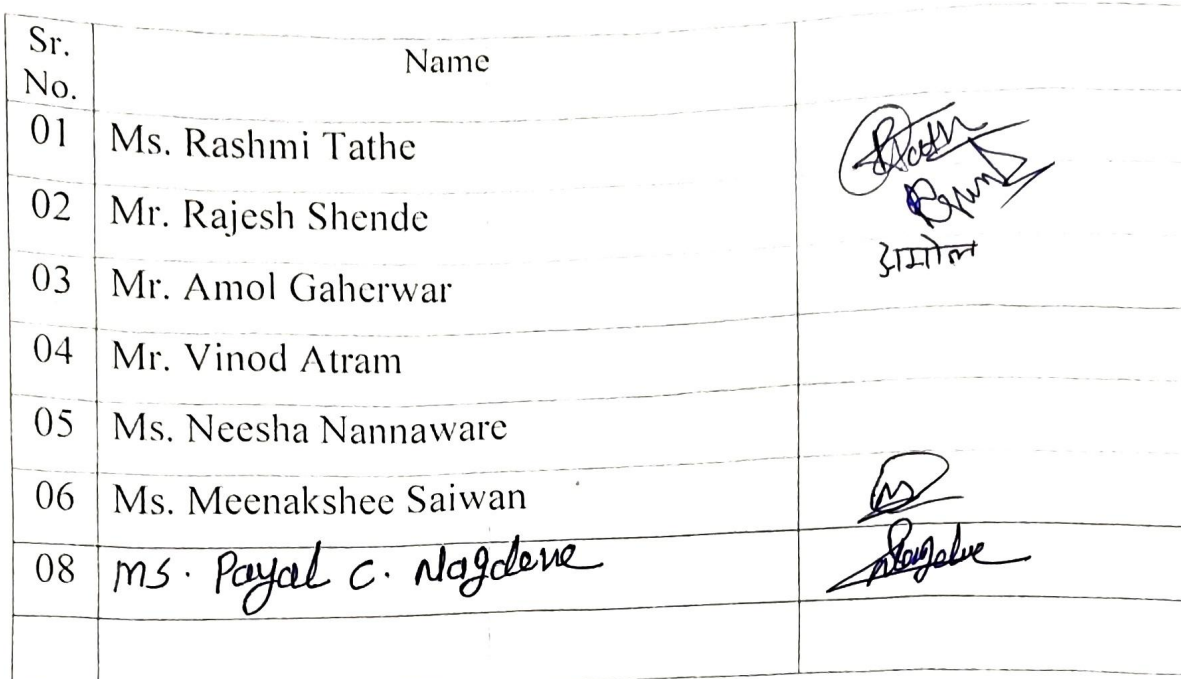 Sr. No. Name
01 Ms. Rashmi Tathe
02 Mr. Rajesh Shende
03 Mr. Amol Gaherwar अमोल
04 Mr. Vinod Atram
05 Ms. Neesha Nannaware
06 Ms. Meenakshee Saiwan
08 Ms. Payal C. Nagdeve Nagdeve